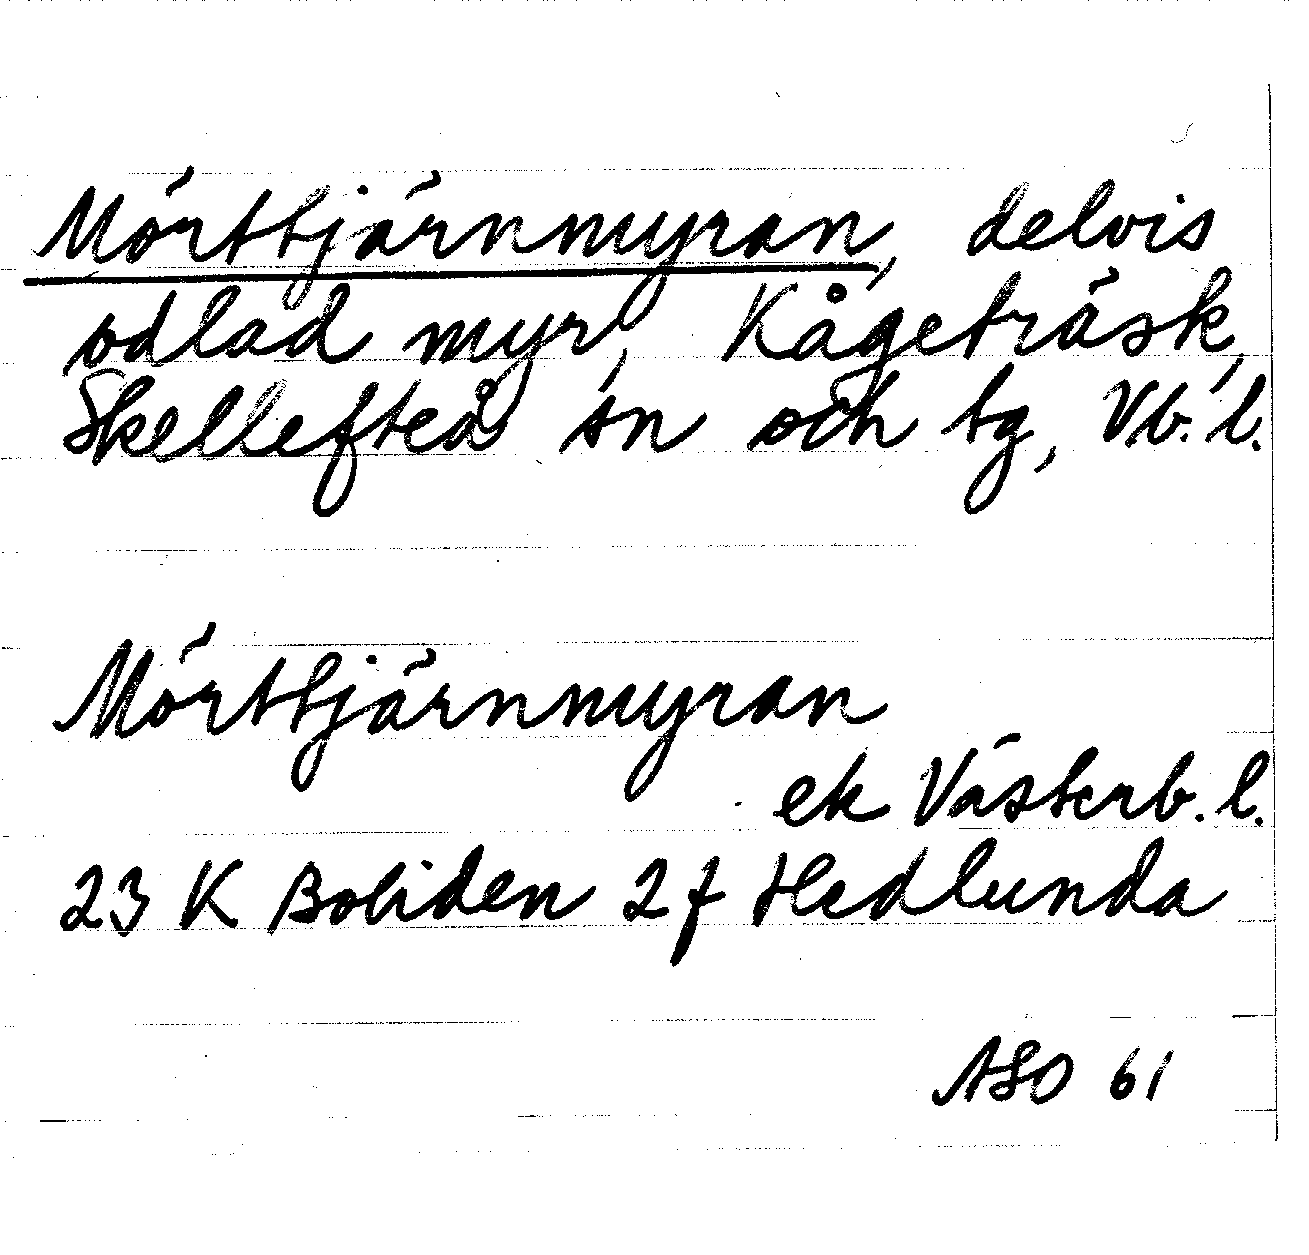 Mörttjärnmyran, delvis
odlad myr, Kågeträsk,
Skellefteå sn och tg, Vb. l.
Mörttjärnmyran
ek Västerb. l.
23 K Boliden 2 f Hedlunda
ASO 61